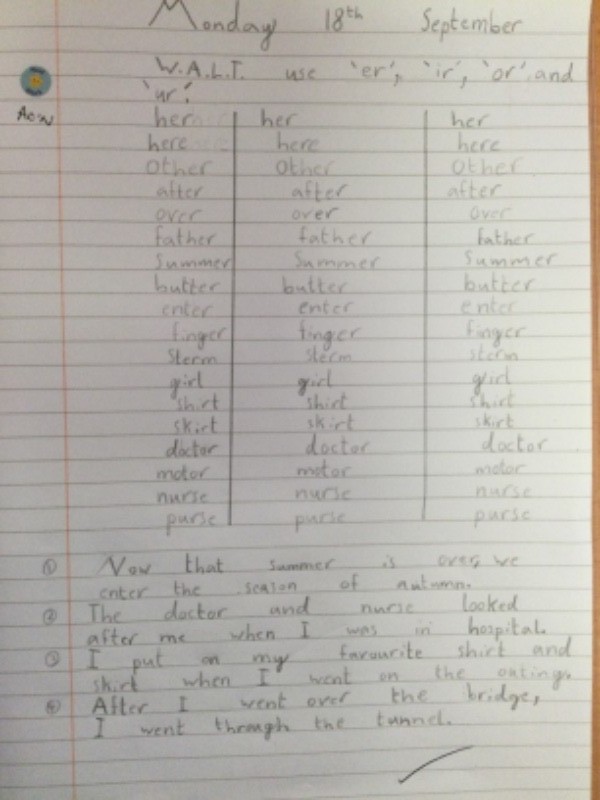 Monday 18th September
W.A.L.T. use 'er', 'ir', 'or' and
'ur'.
her her her
here here here
Other Other Other
after after after
over over over
father father father
Summer Summer Summer
butter butter butter
enter enter enter
finger finger finger
Sterm sterm sterm
girl girl girl
shirt shirt shirt
skirt skirt skirt
doctor doctor doctor
motor motor motor
nurse nurse nurse
purse purse purse
① Now that summer is over, we
enter the season of autumn.
② The doctor and nurse looked
after me when I was in hospital.
③ I put on my favourite shirt and
skirt when I went on the outing.
④ After I went over the bridge,
I went through the tunnel.